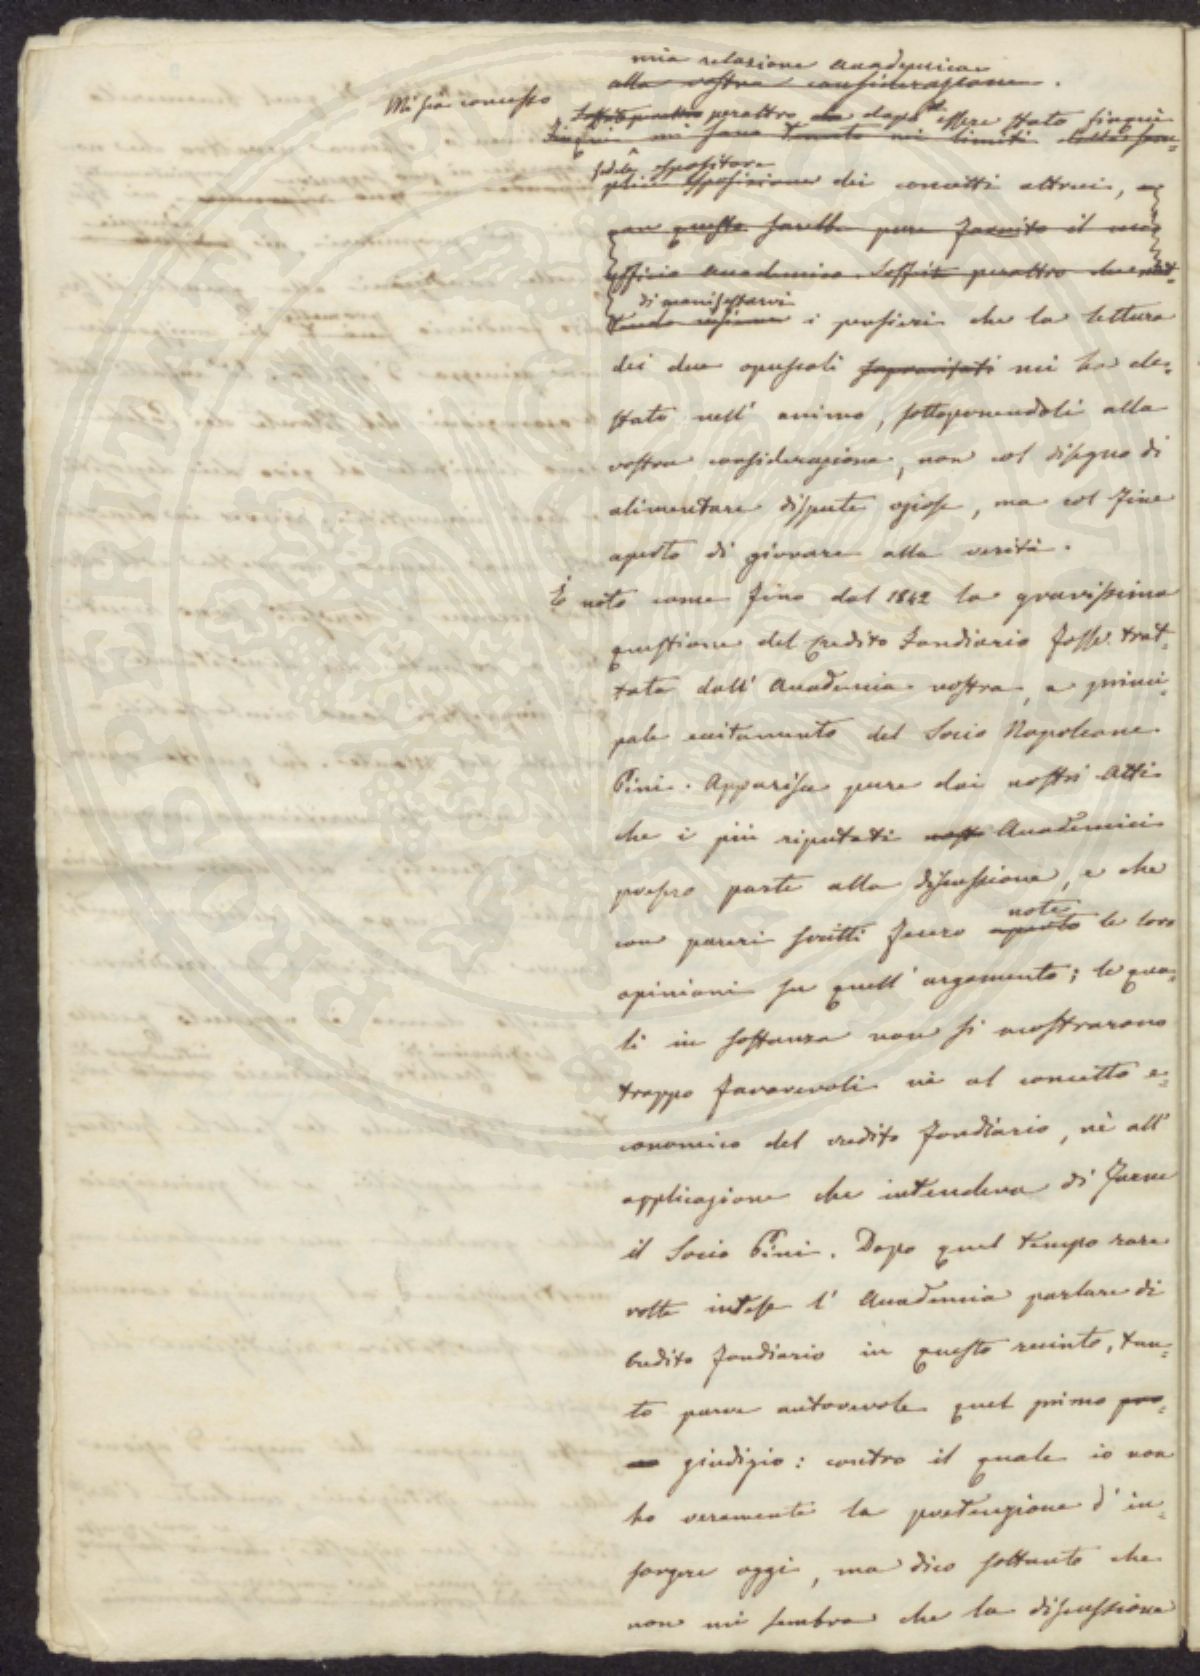 mia relazione Accademica
alla vostra considerazione.
Mi sia concesso
peraltro dopo d'essere stato finqui
Finqui mi sono tenuto nei limiti della sem=
fedele espositore
plice esposizione dei concetti altrui, e
con questo sarebbe pure fornito il mio
officio accademico. Soffrite peraltro che
di manifestarvi
i pensieri che la lettura
dei due opuscoli sopracitati mi ha de=
stato nell' animo, sottoponendoli alla
vostra considerazione, non col disegno di
alimentare dispute oziose, ma col fine
aperto di giovare alla verità.
È noto come fino dal 1842 la gravissima
questione del Credito Fondiario fosse trat=
tata dall' Accademia nostra, a princi=
pale eccitamento del Socio Napoleone
Pini. Apparisce pure dai nostri Atti
che i più riputati nostri Accademici
presero parte alla discussione, e che
note
con pareri scritti fecero aperto le loro
opinioni su quell' argomento; le qua=
li in sostanza non si mostrarono
troppo favorevoli nè al concetto e=
conomico del credito fondiario, nè all'
applicazione che intendeva di farne
il Socio Pini. Dopo quel tempo rare
volte intese l' Accademia parlare di
Credito fondiario in questo recinto, tan=
to parve autorevole quel primo
giudizio: contro il quale io non
ho veramente la pretenzione d' in=
sorgere oggi, ma dico soltanto che
non mi sembra che la discussione